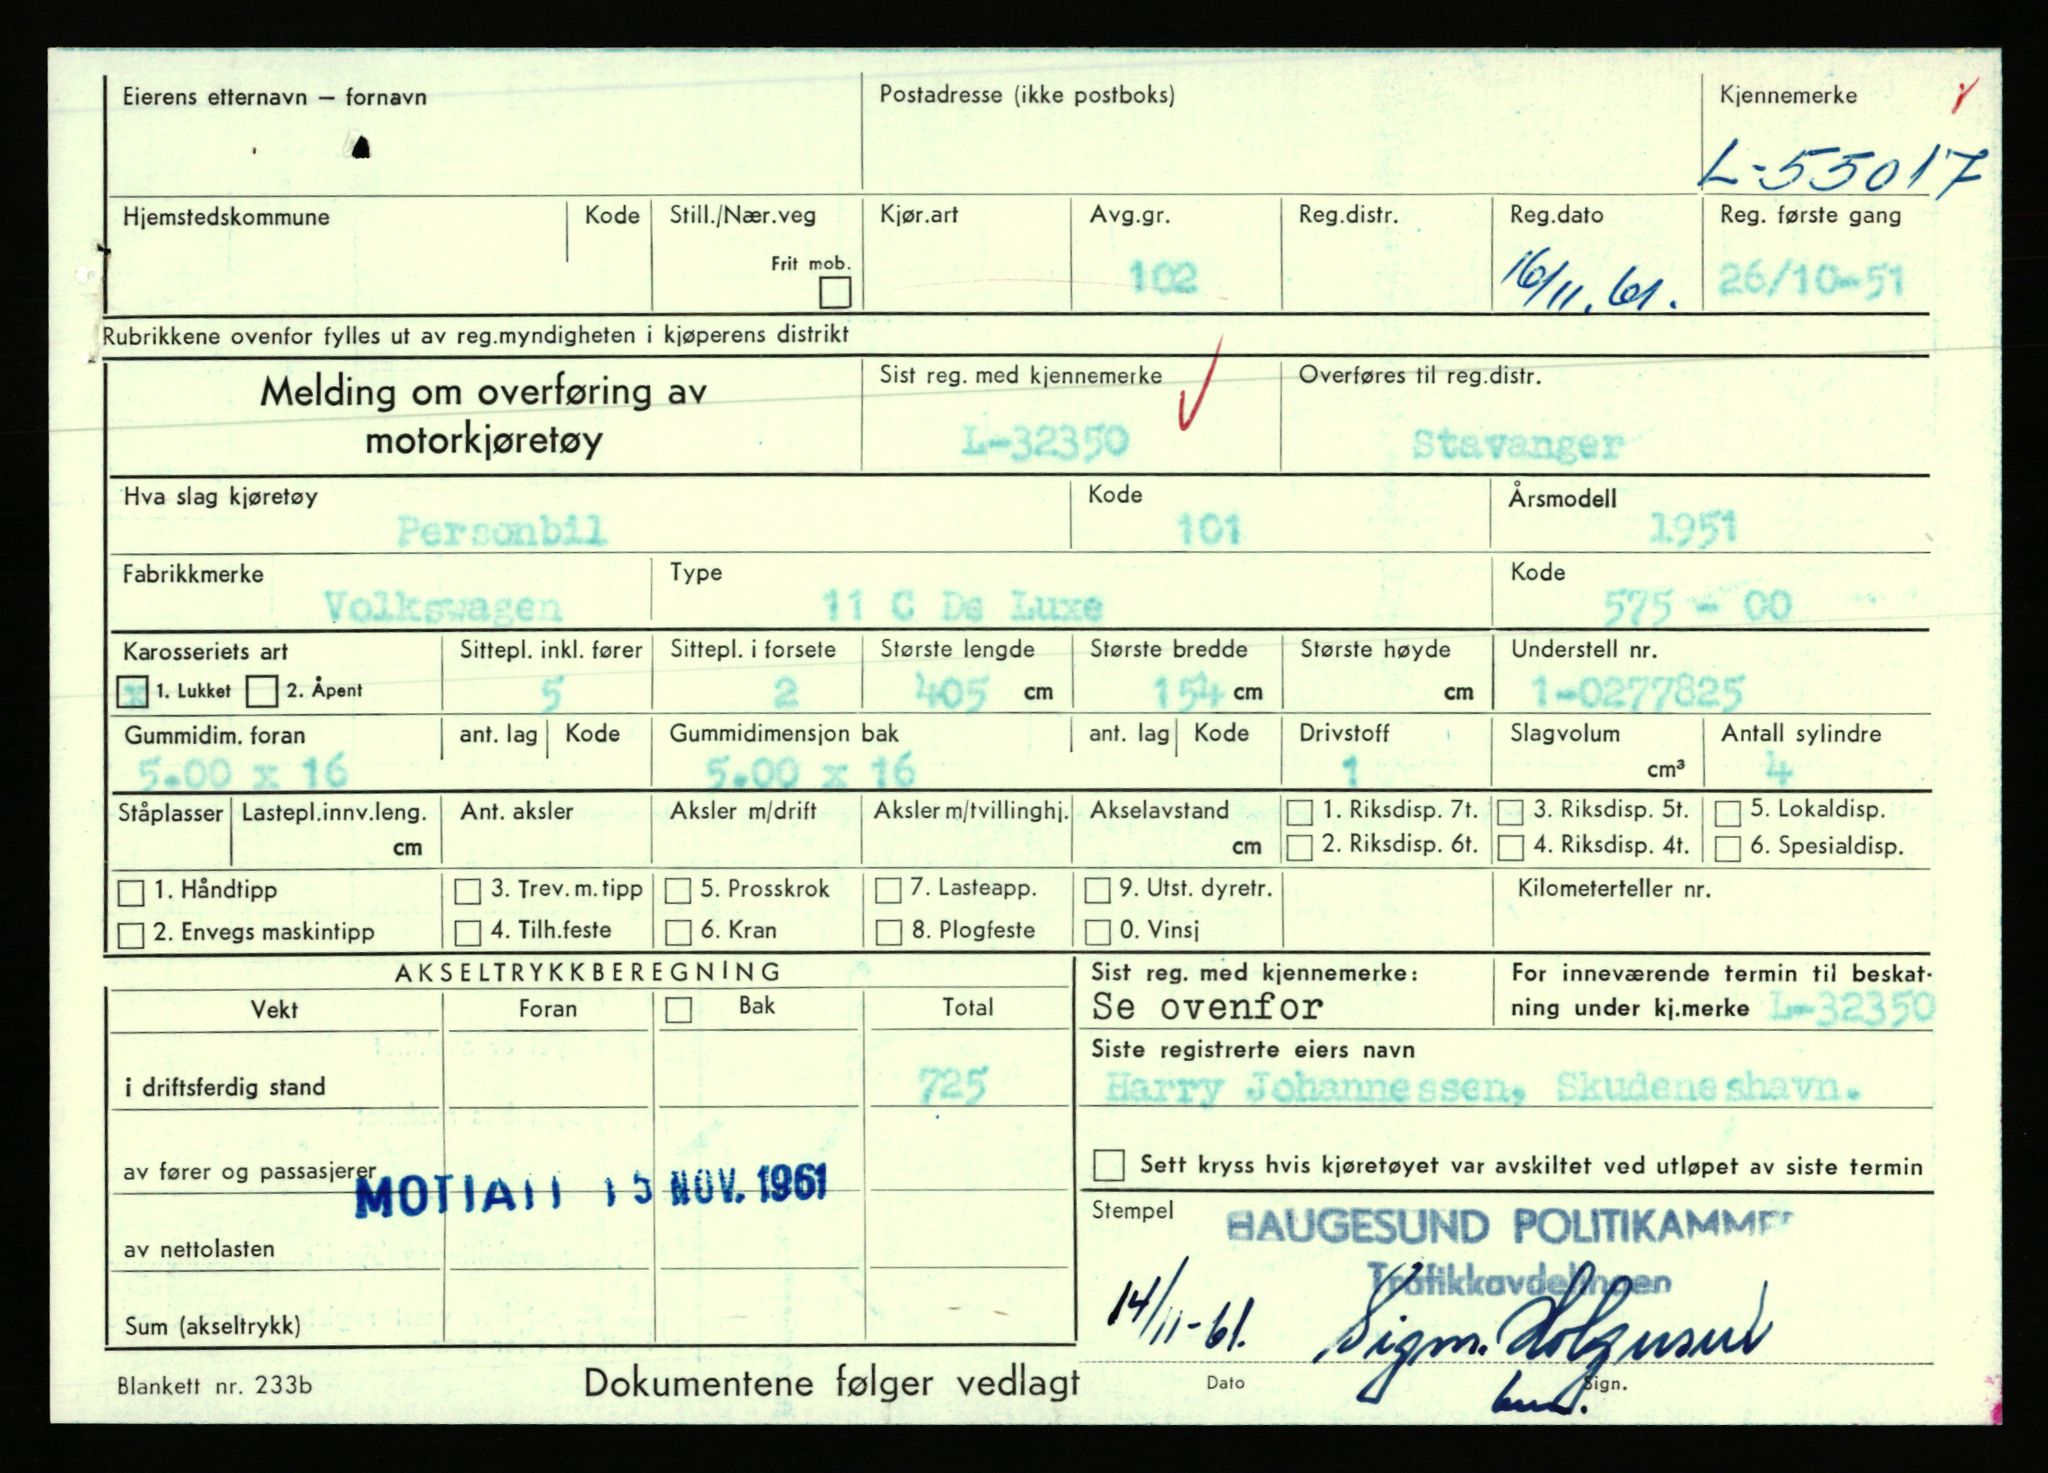 Eierens etternavn – fornavn
Postadresse (ikke postboks)
Kjennemerke
L-55017
Hjemstedskommune
Kode
Still./Nær.veg
Frit mob.
Kjør.art
Avg.gr.
102
Reg.distr.
Reg.dato
16/11.61.
Reg. første gang
26/10-51
Rubrikkene ovenfor fylles ut av reg.myndigheten i kjøperens distrikt
Melding om overføring av
motorkjøretøy
Sist reg. med kjennemerke
L-32350
Overføres til reg.distr.
Stavanger
Hva slag kjøretøy
Personbil
Kode
101
Årsmodell
1951
Fabrikkmerke
Volkswagen
Type
11 C De Luxe
Kode
575 - 00
Karosseriets art
x 1. Lukket 2. Åpent
Sittepl. inkl. fører
5
Sittepl. i forsete
2
Største lengde
405 cm
Største bredde
154 cm
Største høyde
cm
Understell nr.
1-0277825
Gummidim. foran
5.00 x 16
ant. lag
Kode
Gummidimensjon bak
5.00 x 16
ant. lag
Kode
Drivstoff
1
Slagvolum
cm³
Antall sylindre
4
Ståplasser
Lastepl.innv.leng.
cm
Ant. aksler
Aksler m/drift
Aksler m/tvillinghj.
Akselavstand
cm
1. Riksdisp. 7t.
2. Riksdisp. 6t.
3. Riksdisp. 5t.
4. Riksdisp. 4t.
5. Lokaldisp.
6. Spesialdisp.
1. Håndtipp
2. Envegs maskintipp
3. Trev. m. tipp
4. Tilh.feste
5. Prosskrok
6. Kran
7. Lasteapp.
8. Plogfeste
9. Utst. dyretr.
0. Vinsj
Kilometerteller nr.
AKSELTRYKKBEREGNING
Vekt
Foran
Bak
Total
i driftsferdig stand
725
av fører og passasjerer
MOTTATT 15 NOV. 1961
av nettolasten
Sum (akseltrykk)
Sist reg. med kjennemerke:
Se ovenfor
For inneværende termin til beskat-
ning under kj.merke L-32350
Siste registrerte eiers navn
Harry Johannessen, Skudeneshavn.
Sett kryss hvis kjøretøyet var avskiltet ved utløpet av siste termin
Stempel
HAUGESUND POLITIKAMMER
Trafikkavdelingen
14/11-61.
Sigm.
Dato
Sign.
Blankett nr. 233b
Dokumentene følger vedlagt